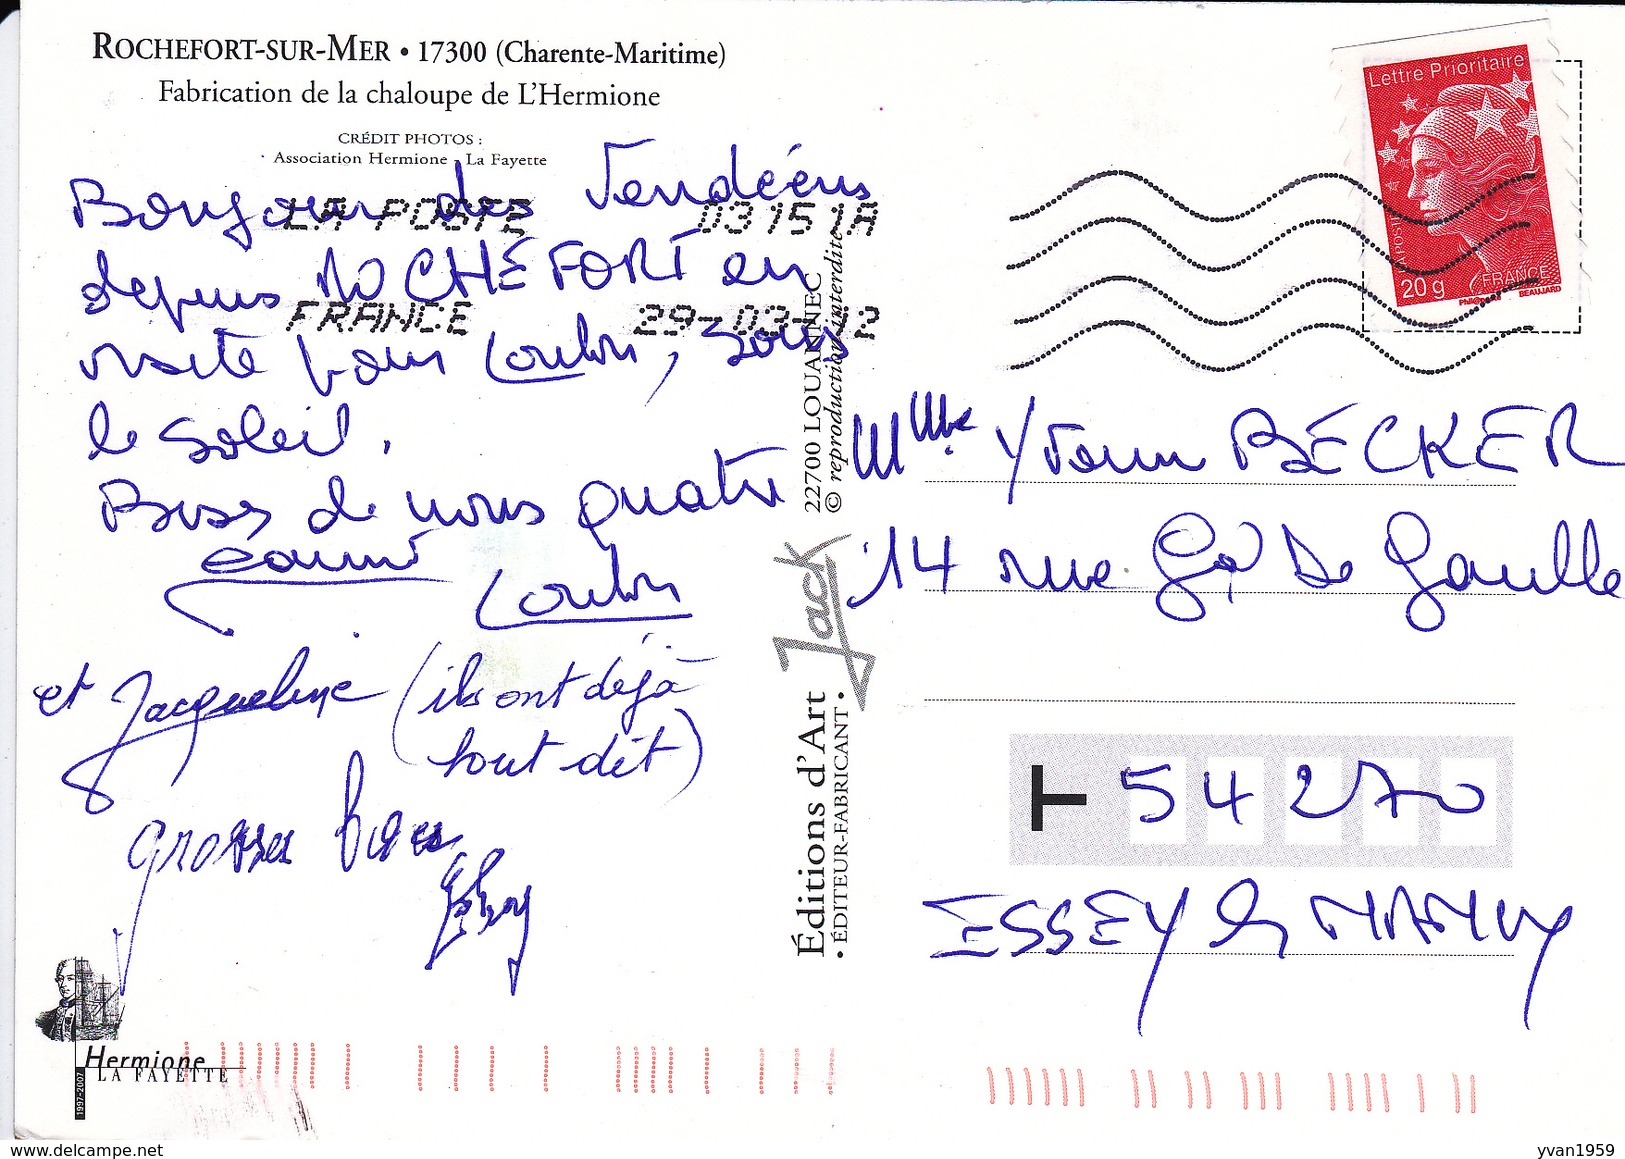 ROCHEFORT-SUR-MER • 17300 (Charente-Maritime)
Fabrication de la chaloupe de L'Hermione
CRÉDIT PHOTOS :
Association Hermione - La Fayette
Bonjour des Vendéens
depuis ROCHEFORT en
visite pour Loulou, sous
le soleil.
Bises de nous quatre
Loulou
et Jacqueline (ils ont déjà
tout dit)
grosses bises
LA POSTE 03151A
FRANCE 29-03-12
22700 LOUANNEC
© reproduction interdite
Jack
Éditions d'Art
• ÉDITEUR-FABRICANT •
Lettre Prioritaire
20g
FRANCE
Phil@poste
BEAUJARD
LA POSTE
M Mme Yvon BECKER
14 rue Gal De Gaulle
T 54270
ESSEY les NANCY
Hermione
LA FAYETTE
1997-2007
yvan1959